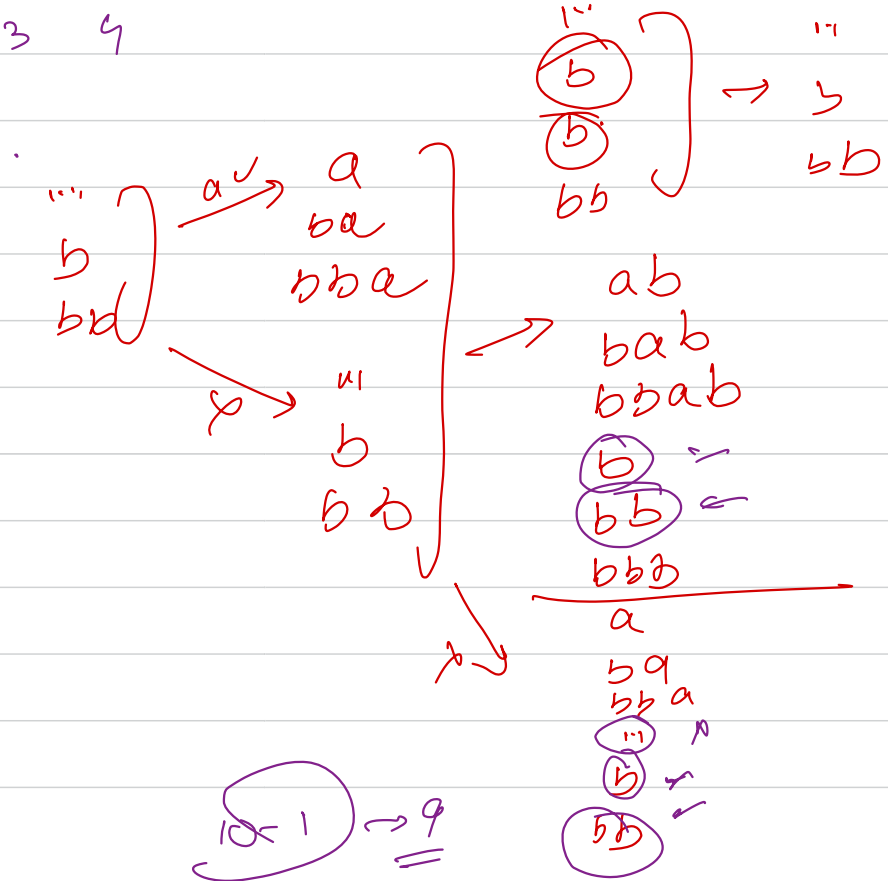 3 4
""
b
b
bb
""
b
bb
""
b
bb
a
a
ba
bba
x
""
b
bb
ab
bab
bbab
b
bb
bbb
x
a
ba
bba
""
b
bb
10 - 1 → 9